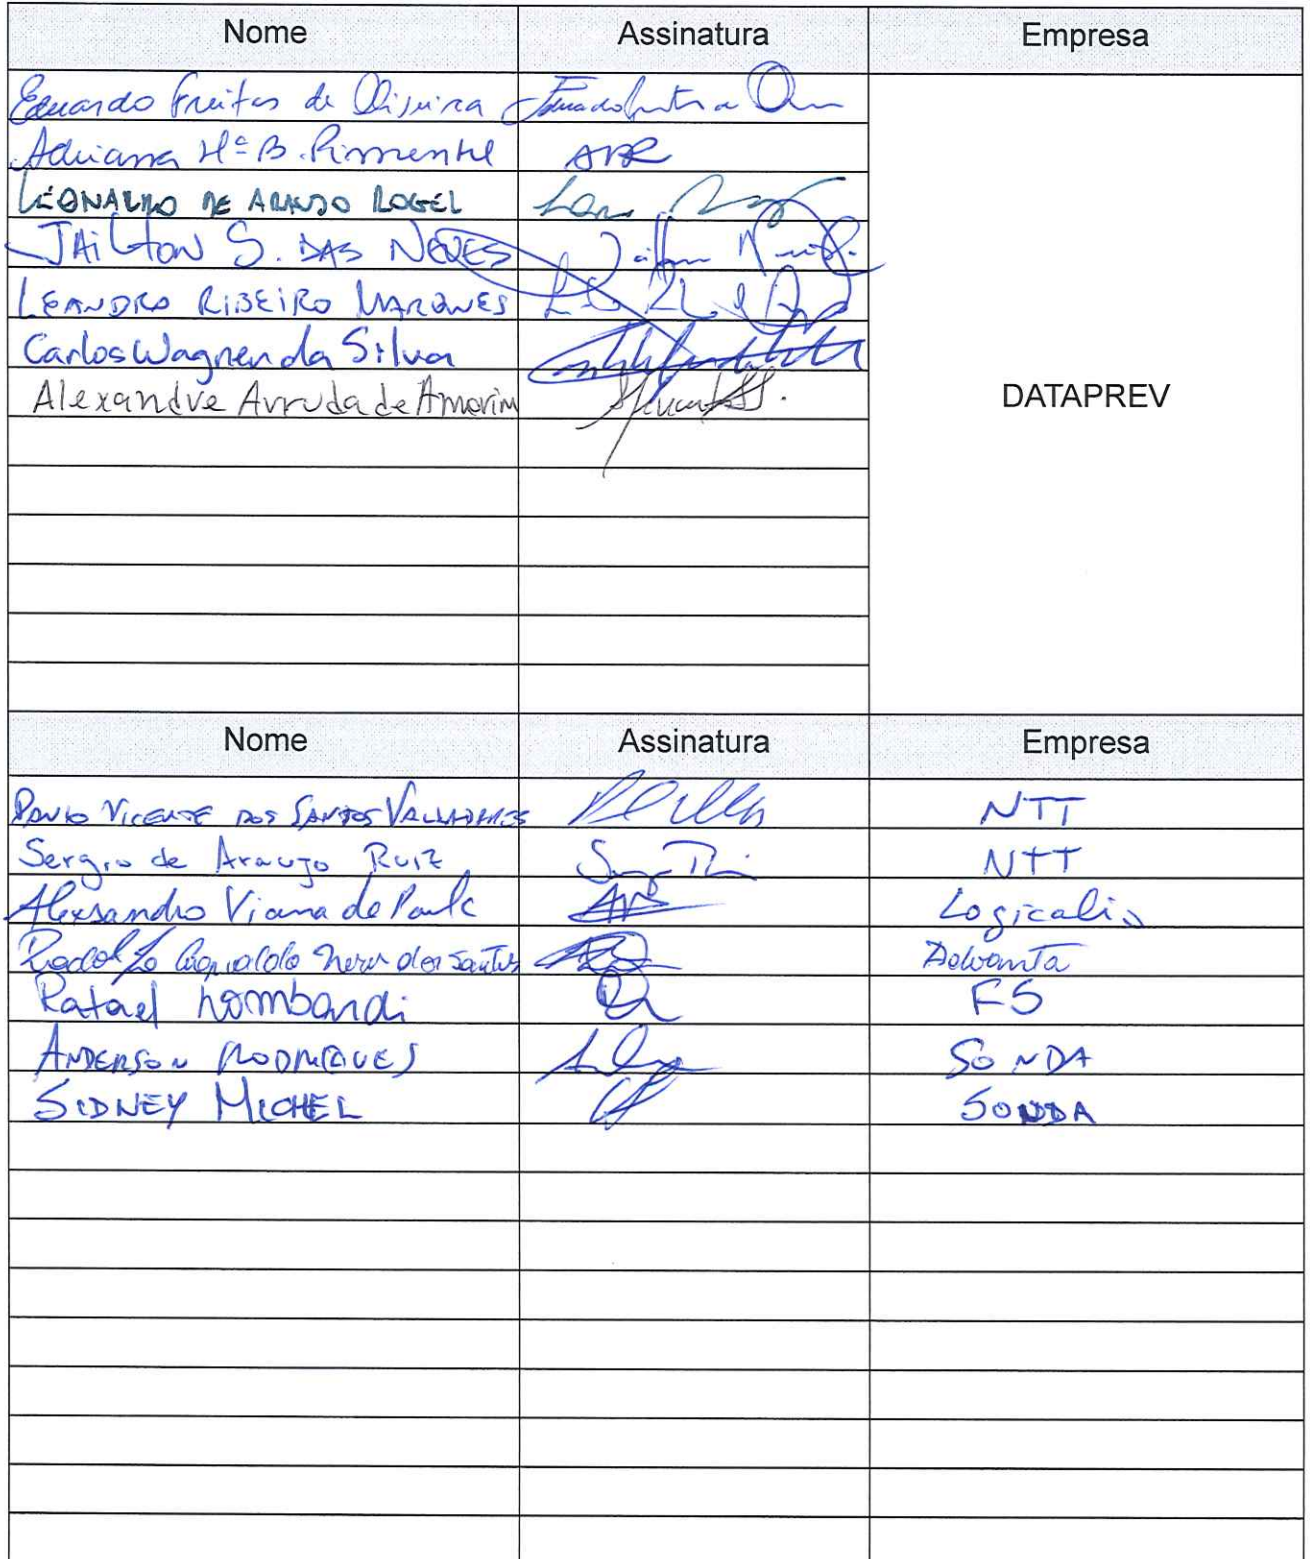 Nome Assinatura Empresa
Eduardo Freitas de Oliveira
Adriana Mª B. Pimentel
LEONARDO DE ARAUJO ROGEL
JAILTON S. DAS NEVES
LEANDRO RIBEIRO MARQUES
Carlos Wagner da Silva
Alexandre Arruda de Amorim
DATAPREV
Nome Assinatura Empresa
PAULO VICENTE DOS SANTOS VALLADARES NTT
Sergio de Araujo Ruiz NTT
Alexsandro Viana de Paula Logicalis
Rodolfo dos Santos Advanta
Rafael Lombardi F5
ANDERSON RODRIGUES SONDA
SIDNEY MICHEL SONDA